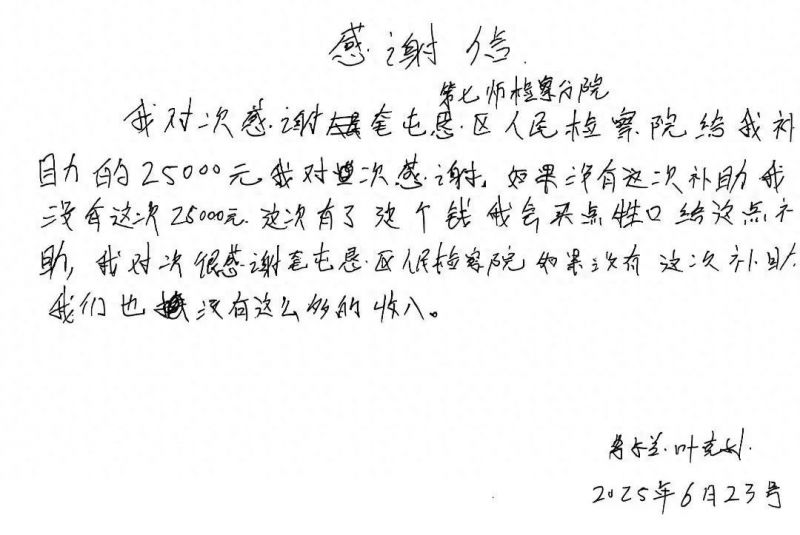 感谢信
第七师检察分院
我对次感谢奎屯垦区人民检察院给我补
助的25000元我对次感谢,如果没有这次补助我
没有这次25000元.这次有了这个钱我会买点牲口给这点补
助,我对次很感谢奎屯垦区人民检察院如果没有这次补助
我们也没有这么多的收入。
叶克
2025年6月23号